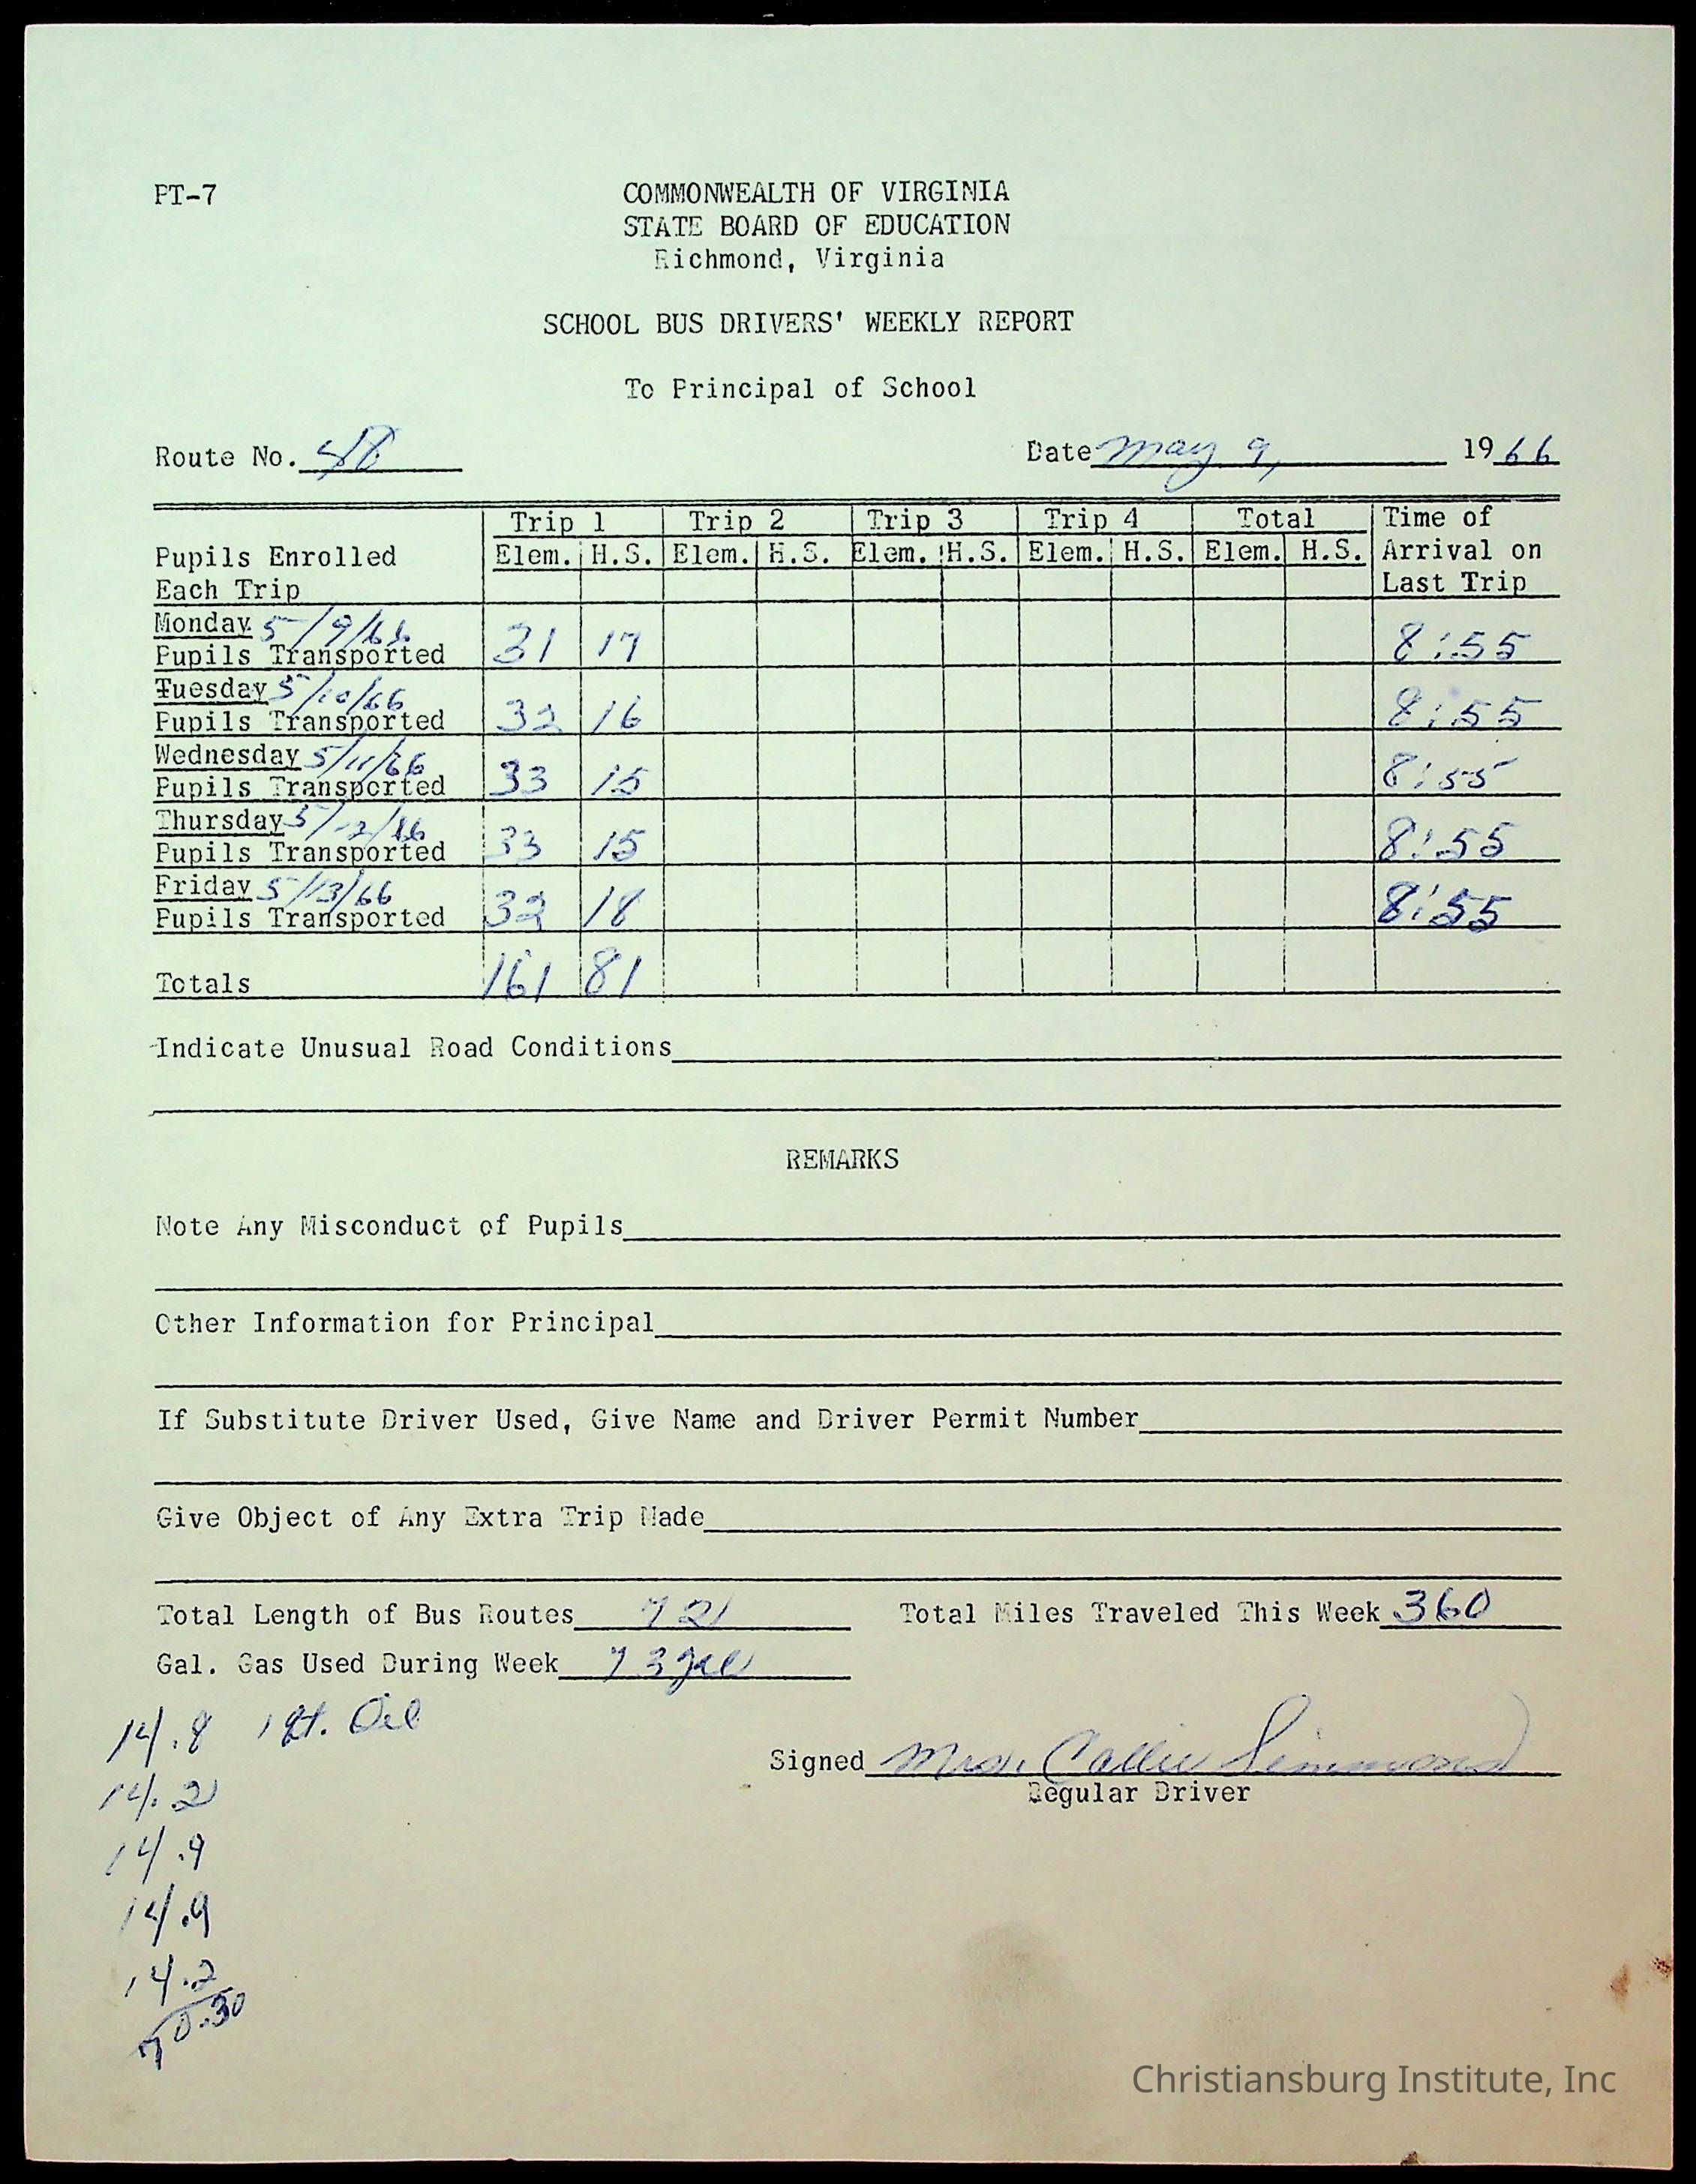 PT-7
COMMONWEALTH OF VIRGINIA
STATE BOARD OF EDUCATION
Richmond, Virginia
SCHOOL BUS DRIVERS' WEEKLY REPORT
To Principal of School
Route No. 48 Date May 9, 1966
Trip 1 Trip 2 Trip 3 Trip 4 Total Time of
Pupils Enrolled Elem. H.S. Elem. H.S. Elem. H.S. Elem. H.S. Elem. H.S. Arrival on
Each Trip Last Trip
Monday 5/9/66
Pupils Transported 31 17 8:55
Tuesday 5/10/66
Pupils Transported 32 16 8:55
Wednesday 5/11/66
Pupils Transported 33 15 8:55
Thursday 5/12/66
Pupils Transported 33 15 8:55
Friday 5/13/66
Pupils Transported 32 18 8:55
Totals 161 81
Indicate Unusual Road Conditions
REMARKS
Note Any Misconduct of Pupils
Other Information for Principal
If Substitute Driver Used, Give Name and Driver Permit Number
Give Object of Any Extra Trip Made
Total Length of Bus Routes 72 Total Miles Traveled This Week 360
Gal. Gas Used During Week 73 gal
14.8 1 qt. Oil
Signed Mrs. Callie Simmons
Regular Driver
14.2
14.9
14.9
14.2
70.30
Christiansburg Institute, Inc